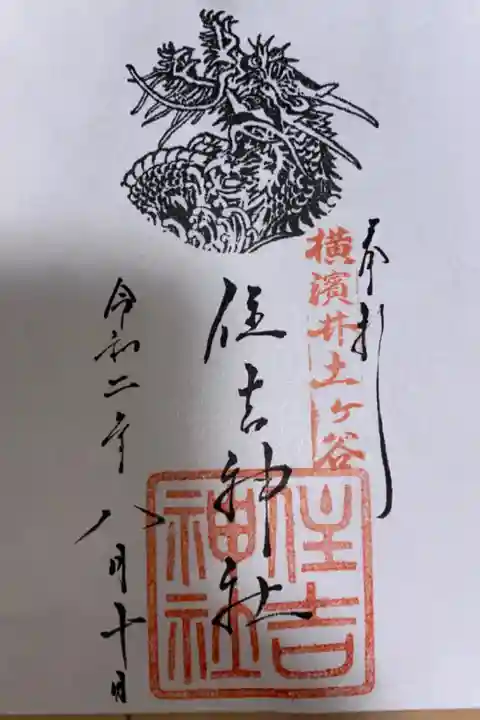 奉拝
横濱井土ヶ谷
住吉神社
住吉
神社
令和二年八月十日